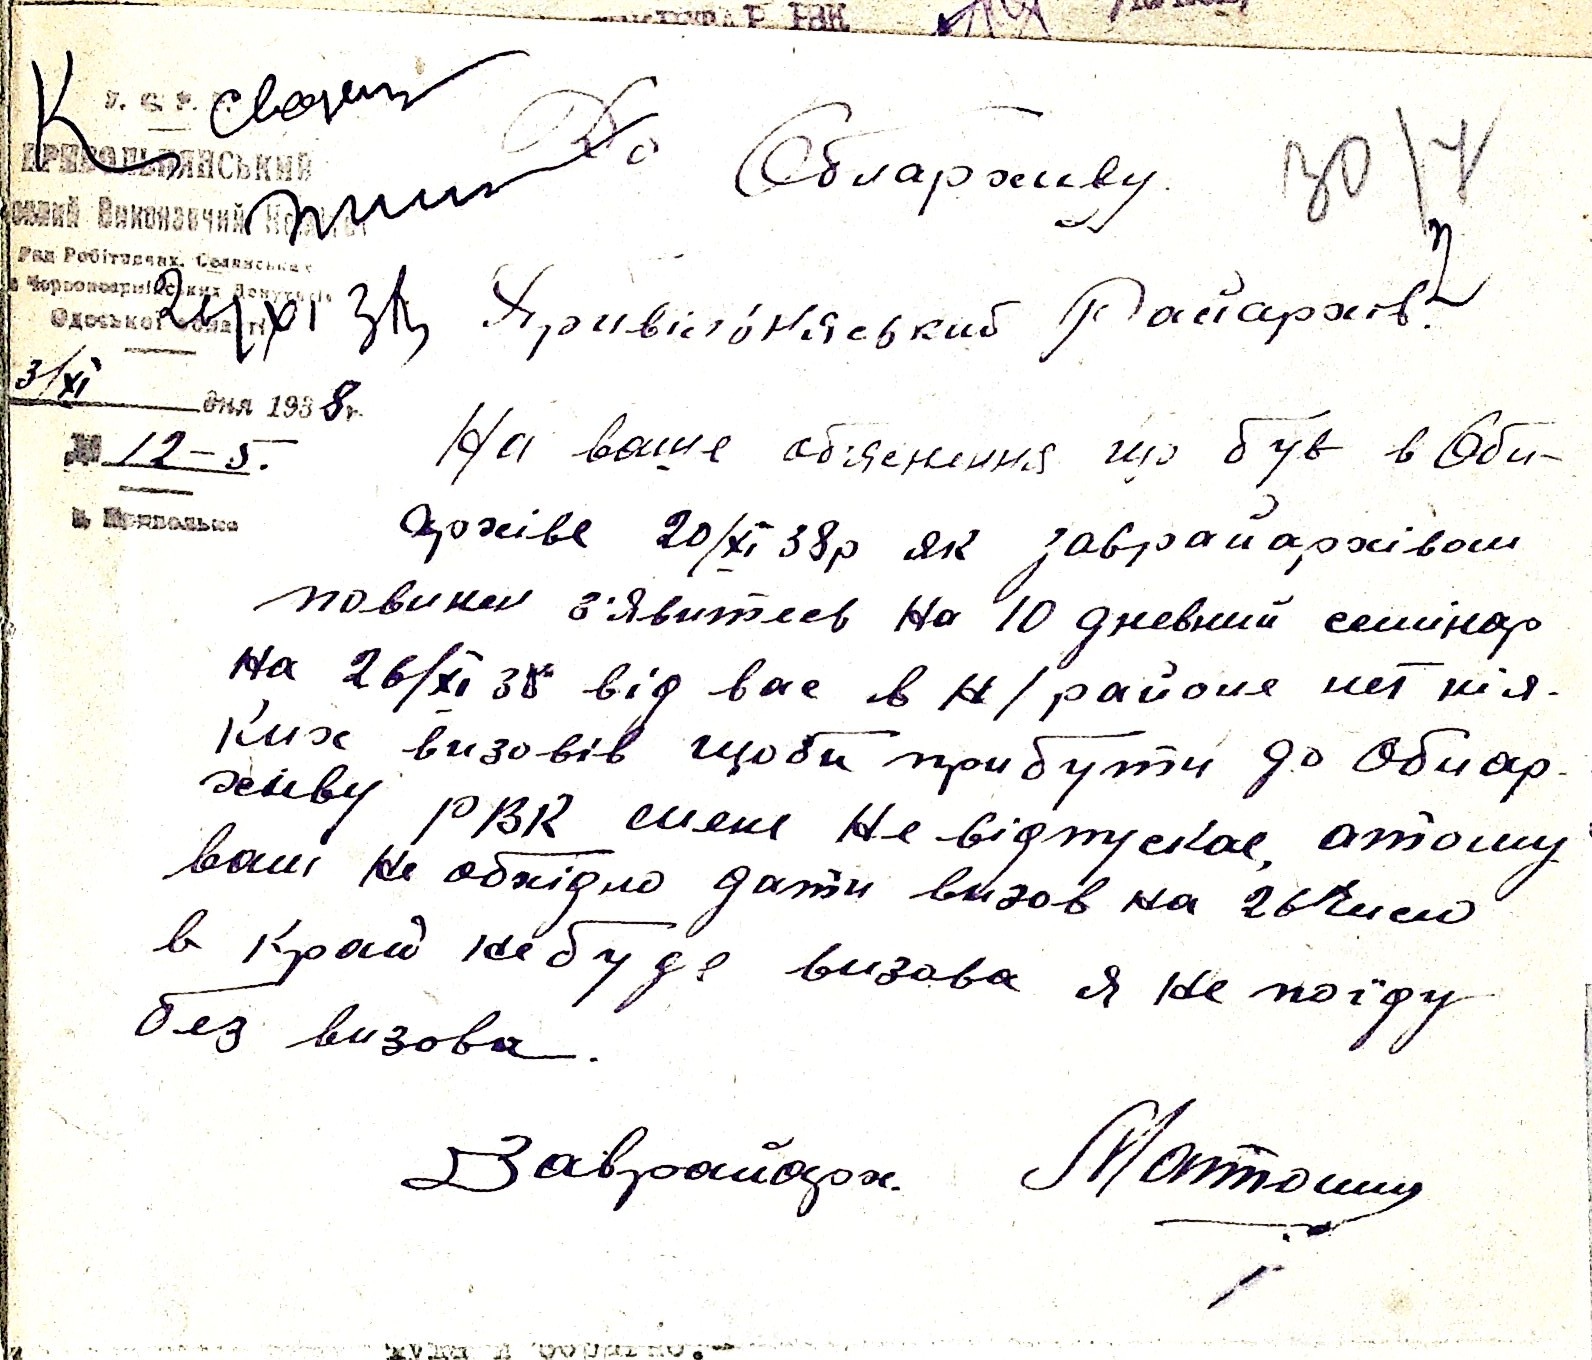 К сведению
У. С. Р. Р.
ПРИВОЛЬНЯНСЬКИЙ
Виконавчий
Рад Робітничих, Селянських
Червоноармійських Депутатів
Одеської області
24/XI 38
3/XI дня 1938 г.
№ 12-5.
До Облархиву
30/
Привільнянський Райархів.
На ваше обяснення що був в Обл-
архіве 20/XI 38р як заврайархівом
повинен з'явитесь на 10 дневний семінар
на 26/XI 38 від вас в н/районе нет нія-
ких визовів щоби прибути до Облар-
хиву РВК мене не відпускае, атому
вам не обхідно дати визов на 26 число
в край небуде визова я не поїду
без визова.
Заврайарх.